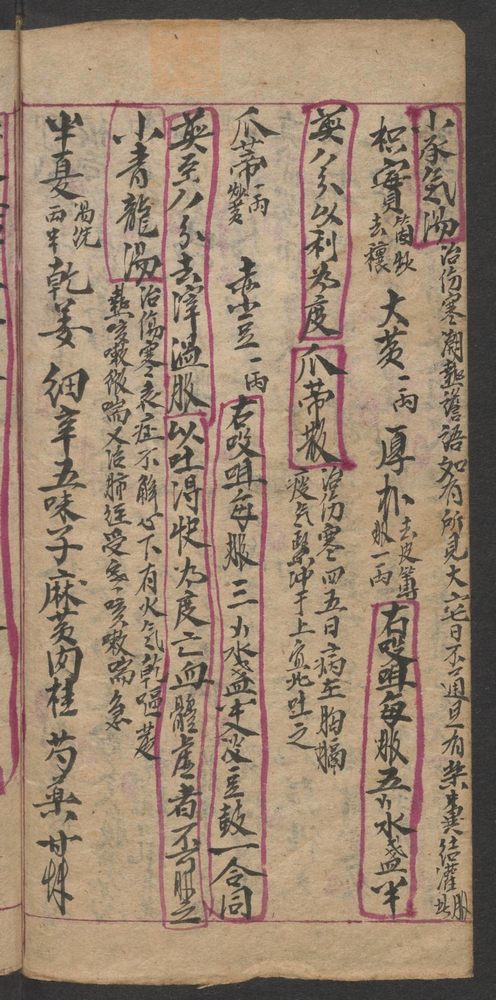 小承氣湯 治傷寒潮熱譫語如有所見大六七日不通且有燥糞結灌服此
枳實 一箇炒去穰 大黃 一兩 厚朴 去皮薑炒一兩 右㕮咀每服五水盞半
煎八分以利為度 瓜蒂散 治傷寒四五日病在胸膈痰氣緊冲于上宜此吐之
瓜蒂 一兩炒黃 赤小豆 一兩 右㕮咀每服三水盞半入豆鼓一合同
煎至八分去滓溫服以吐得快為度亡血體虛者不可服之
小青龍湯 治傷寒表症不解心下有火氣乾嘔發熱咳嗽微喘又治肺經受寒咳嗽喘急
半夏 湯洗兩半 乾姜 細辛 五味子 麻黃 肉桂 芍藥 甘草